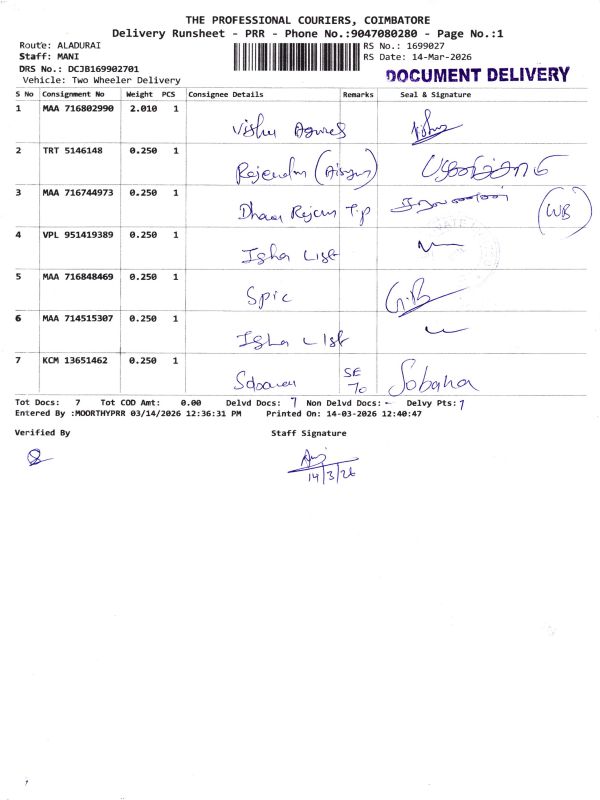 THE PROFESSIONAL COURIERS, COIMBATORE
Delivery Runsheet - PRR - Phone No.:9047080280 - Page No.:1
Route: ALADURAI
RS No.: 1699027
Staff: MANI
RS Date: 14-Mar-2026
DRS No.: DCJB169902701
DOCUMENT DELIVERY
Vehicle: Two Wheeler Delivery
S No Consignment No Weight PCS Consignee Details Remarks Seal & Signature
1 MAA 716802990 2.010 1
2 TRT 5146148 0.250 1
3 MAA 716744973 0.250 1 (WB)
4 VPL 951419389 0.250 1 Isha List
5 MAA 716848469 0.250 1 Spic
6 MAA 714515307 0.250 1 Isha List
7 KCM 13651462 0.250 1 Sobana
Tot Docs: 7 Tot COD Amt: 0.00 Delvd Docs: 7 Non Delvd Docs: - Delvy Pts: 7
Entered By :MOORTHYPRR 03/14/2026 12:36:31 PM Printed On: 14-03-2026 12:40:47
Verified By Staff Signature
14/3/26